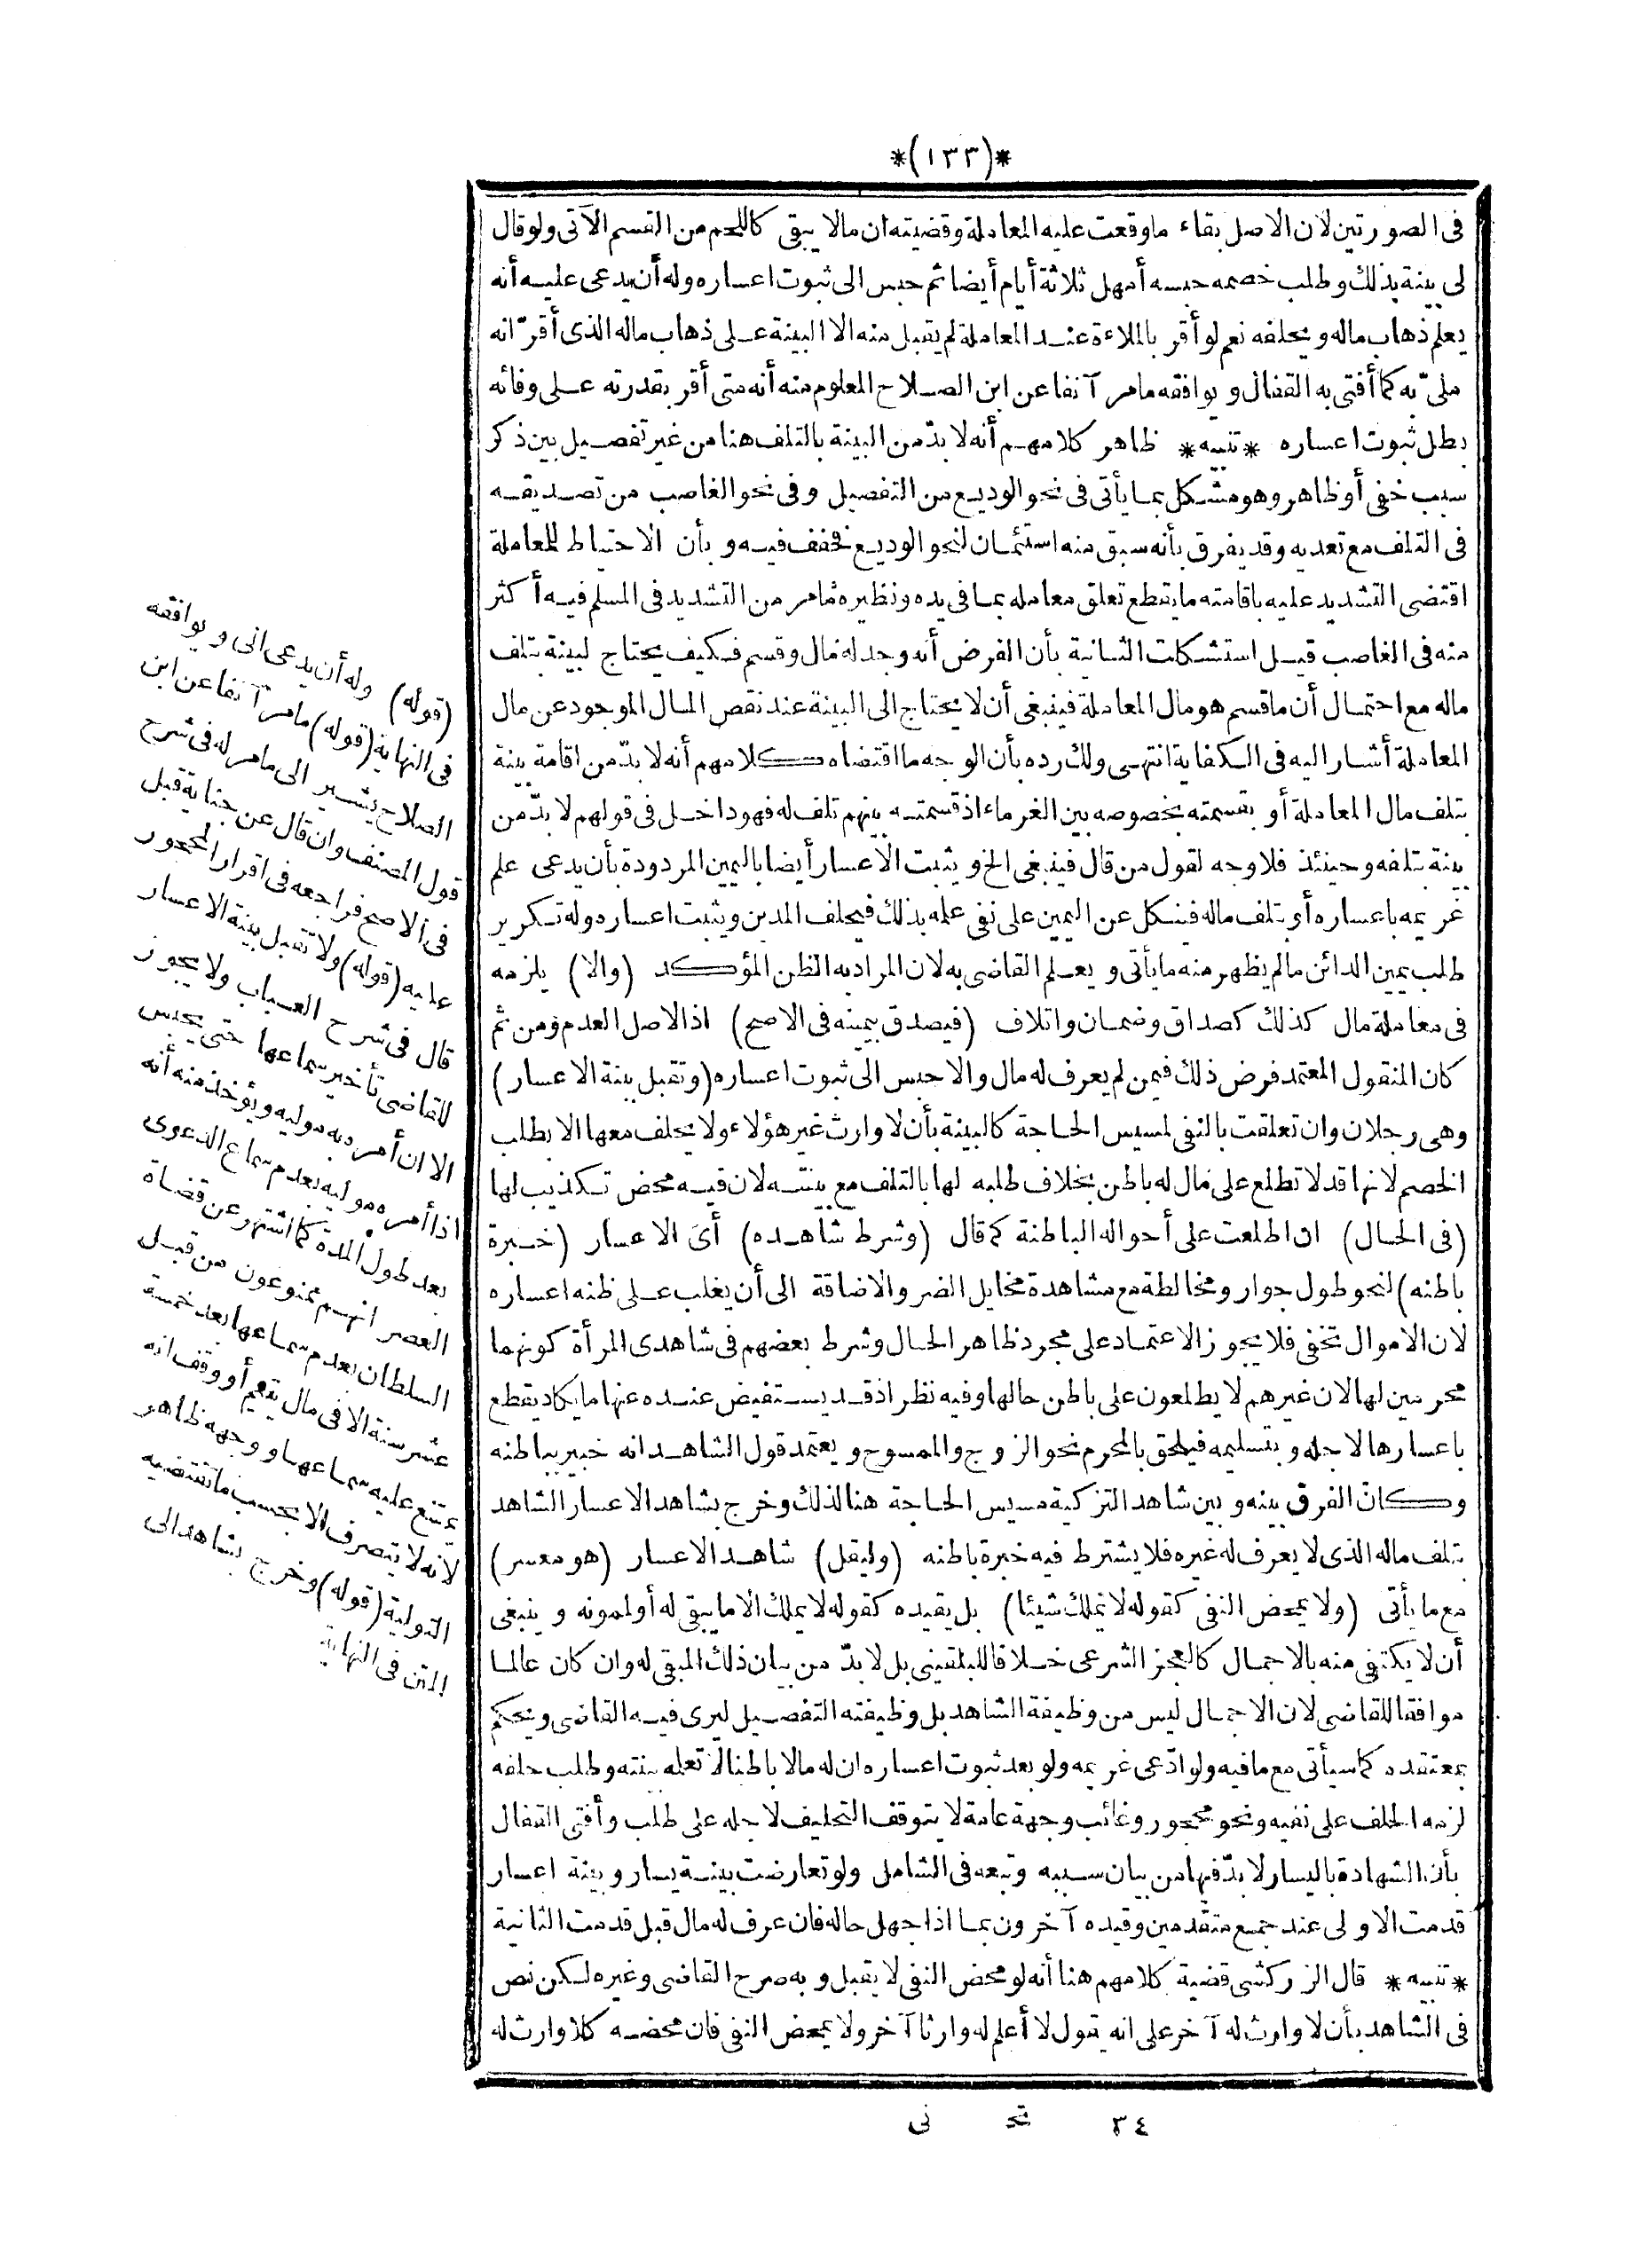 *(١٣٣)*
في الصورتين لان الاصل بقاء ما وقعت عليه المعاملة وقضيته ان مالا يبقى كاللحم من القسم الآتى ولو قال
لى بينة بذلك وطلب خصمه حبسه أمهل ثلاثة أيام أيضا ثم حبس الى ثبوت اعساره وله أن يدعى عليه أنه
يعلم ذهاب ماله ويحلفه نعم لو أقر بالملاءة عند المعاملة لم يقبل منه الا البينة على ذهاب ماله الذى أقرّ انه
ملىّ به كما أفتى به القفال ويوافقه مامر آنفا عن ابن الصلاح المعلوم منه أنه متى أقر بقدرته على وفائه
بطل ثبوت اعساره *تنبيه* ظاهر كلامهم أنه لا بدّ من البينة بالتلف هنا من غير تفصيل بين ذكر
سبب خفى أو ظاهر وهو مشكل بما يأتى فى نحو الوديع من التفصيل وفى نحو الغاصب من تصديقه
فى التلف مع تعديه وقد يفرق بأنه سبق منه استئمان لنحو الوديع فخفف فيه و بأن الاحتياط للمعاملة
اقتضى التشديد عليه باقامته ما يقطع تعلق معامله بما فى يده ونظيره مامر من التشديد فى المسلم فيه أكثر
منه فى الغاصب قيل استشكلت الثانية بأن الفرض أنه وجد له مال وقسم فكيف يحتاج لبينة بتلف
ماله مع احتمال أن ما قسم هو مال المعاملة فينبغى أن لا يحتاج الى البينة عند نقص المال الموجود عن مال
المعاملة أشار اليه فى الكفاية انتهى ولك رده بأن الوجه ما اقتضاه كلامهم أنه لا بدّ من اقامة بينة
بتلف مال المعاملة أو بقسمته بخصوصه بين الغرماء اذ قسمته بينهم تلف له فهو داخل فى قولهم لا بدّ من
بينة بتلفه وحينئذ فلا وجه لقول من قال فينبغى الخ ويثبت الاعسار أيضا باليمين المردودة بأن يدعى علم
غريمه باعساره أى بتلف ماله فينكل عن اليمين على نفى علمه بذلك فيحلف المدين ويثبت اعساره وله تكرير
طلب يمين الدائن ما لم يظهر منه ما يأتى و يعلم القاضى به لان المراد به الظن المؤكد (والا) يلزمه
فى معاملة مال كذلك كصداق وضمان واتلاف (فيصدق بيمينه فى الاصح) اذ الاصل العدم ومن ثم
كان المنقول المعتمد فرض ذلك فيمن لم يعرف له مال والا حبس الى ثبوت اعساره (وتقبل بينة الاعسار)
وهى رجلان وان تعلقت بالنفى لمسيس الحاجة كالبينة بأن لا وارث غير هؤلاء ولا يحلف معها الا بطلب
الخصم لانها قد لا تطلع على مال له باطن بخلاف طلبه لها بالتلف مع بينته لان فيه محض تكذيب لها
(فى الحال) ان اطلعت على أحواله الباطنة كما قال (وشرط شاهده) أى الاعسار (خبرة
باطنه) لنحو طول جوار ومخالطة مع مشاهدة مخايل الضر والاضاقة الى أن يغلب على ظنه اعساره
لان الاموال تخفى فلا يجوز الاعتماد على مجرد ظاهر الحال وشرط بعضهم فى شاهدى المرأة كونهما
محرمين لها لان غيرهم لا يطلعون على باطن حالها وفيه نظر اذ قد يستفيض عنده عنها ما يكاد يقطع
باعسارها لاجله وبتسليمه فيلحق بالمحرم نحو الزوج والممسوح ويعتمد قول الشاهد انه خبير بباطنه
وكان الفرق بينه و بين شاهد التزكية مسيس الحاجة هنا لذلك وخرج بشاهد الاعسار الشاهد
بتلف ماله الذى لا يعرف له غيره فلا يشترط فيه خبرة باطنه (وليقل) شاهد الاعسار (هو معسر)
مع ما يأتى (ولا يمحض النفى كقوله لا يملك شيئا) بل يقيده كقوله لا يملك الا ما يبقى له أو لممونه و ينبغى
أن لا يكتفى منه بالاجمال كالعجز الشرعى خلافا للبلقينى بل لا بدّ من بيان ذلك المبقى له وان كان عالما
موافقا للقاضى لان الاجمال ليس من وظيفة الشاهد بل وظيفته التفصيل ليرى فيه القاضى ويحكم
بمعتقده كما سيأتى مع ما فيه ولو ادّعى غريمه ولو بعد ثبوت اعساره ان له مالا باطنا لا تعلمه بينته وطلب حلفه
لزمه الحلف على نفيه ونحو محجور وغائب وجهة عامة لا يتوقف التحليف لاجله على طلب وأفتى القفال
بأن الشهادة باليسار لا بدّ فيها من بيان سببه وتبعه فى الشامل ولو تعارضت بينة يسار وبينة اعسار
قدمت الاولى عند جمع متقدمين وقيده آخرون بما اذا جهل حاله فان عرف له مال قبل قدمت الثانية
*تنبيه* قال الزركشى قضية كلامهم هنا أنه لو محض النفى لا يقبل و به صرح القاضى وغيره لكن نص
فى الشاهد بأن لا وارث له آخر على انه يقول لا أعلم له وارثا آخر ولا يمحض النفى فان محضه كلا وارث له
(قوله) وله أن يدعى الى ويوافقه
فى النهاية (قوله) مامر آنفا عن ابن
الصلاح يشير الى مامر له فى شرح
قول المصنف وان قال عن جناية قبل
فى الاصح فراجعه فى اقرار المحجور
عليه (قوله) ولا تقبل بينة الاعسار
قال فى شرح العباب ولا يجوز
للقاضى تأخير سماعها حتى يحبس
الا ان أمره به موليه ويؤخذ منه أنه
اذا أمره موليه بعدم سماع الدعوى
بعد طول المدة كما اشتهر عن قضاة
العصر انهم ممنوعون من قبل
السلطان بعدم سماعها بعد خمسة
عشر سنة الا فى مال يتيم أو وقف انه
يمتنع عليه سماعها ووجهه ظاهر
لانه لا يتصرف الا بحسب ما تقتضيه
التولية (قوله) وخرج بشاهد الى
المتن فى النهاية
٣٤ تح نى